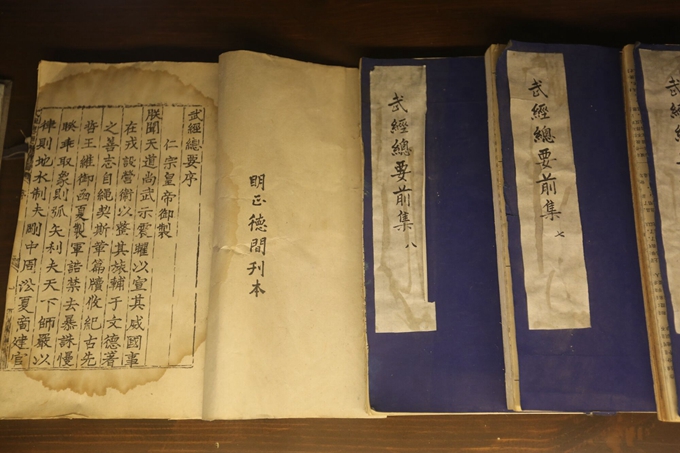 武經總要序
仁宗皇帝御製
朕聞天道尚武示震曜以宣其威國事
在戎設營衛以整其旅輔于文德著
之善志自繩契斯章篇牘攸紀古先
王維御夏製軍詰禁去暴誅慢
睽乖取象則弧矢利夫天下師嚴以
律則地水制夫剛中周㳂夏商建官
明正德間刊本
武經總要前集 八
武經總要前集 七
武經總要前集